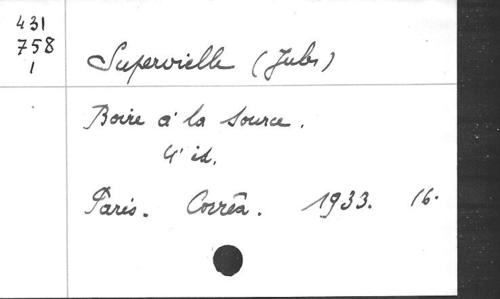 431
758
1
Supervielle (Jules)
Boire à la source.
4' éd.
Paris. Corrêa. 1933. 16.